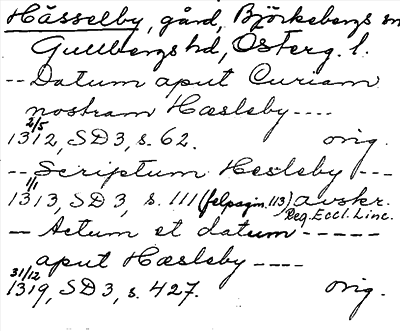 Hässelby, gård, Björkebergs sn
Gullbergs hd, Österg. l.
-- Datum aput Curiam
nostram Hæsleby ----
2/5
1312, SD 3, s. 62. orig.
-- Scriptum Hesleby ---
1/1
1313, SD 3, s. 111 (felpagin. 113) avskr.
Reg. Eccl. Linc.
-- Actum et datum -----
aput Hæsleby ----
31/12
1319, SD 3, s. 427. orig.